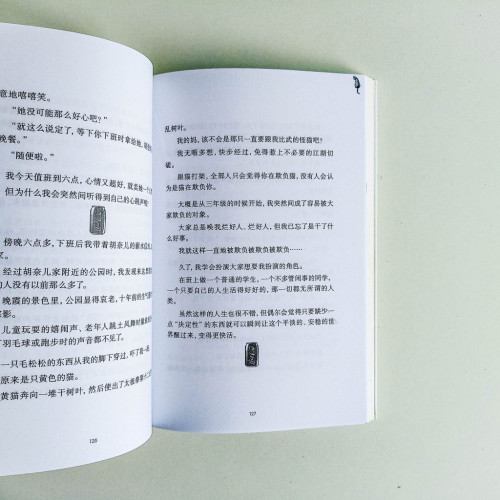 意地嘻嘻笑。
“她没可能那么好心吧？”
“就这么说定了，等下你下班时拿给她，
晚餐。”
“随便啦。”
我今天值班到六点，心情又超好，就
但为什么我会突然间听得到自己的心跳声
傍晚六点多，下班后我带着胡奈儿的薪水
经过胡奈儿家附近的公园时，我发现
的人没有以前那么多了。
晚霞的景色里，公园显得哀老，十年前的
影。
儿童玩耍的嬉闹声、老年人跳土风舞时
羽毛球或跑步时的声音都不见了。
一只毛松松的东西从我的脚下穿过，吓了我一跳
原来是只黄色的猫。
黄猫奔向一堆干树叶，然后使出了太极拳第
126
乱树叶。
我的妈，该不会是那只一直要跟我比武的怪猫吧？
我无暇多想，快步经过，免得惹上不必要的江湖切
磋。
跟猫打架，全部人只会觉得你在欺负猫，没有人会认
为是猫在欺负你。
大概是从三年级的时候开始，我突然间成了容易被大
家欺负的对象。
大家总是唤我烂好人、烂好人，但我已忘了是干了什
么好事。
我就这样一直地被欺负被欺负被欺负……
久了，我学会扮演大家想要我扮演的角色。
在班上做一个普通的学生，一个不多管闲事的同学，
一个只要自己的人生活得好好的，那一切都无所谓的人
类。
虽然这样的人生也很不错，但偶尔会觉得只要缺少一
点“决定性”的东西就可以瞬间让这个平淡的、安稳的世
界醒过来，变得更快活。
127